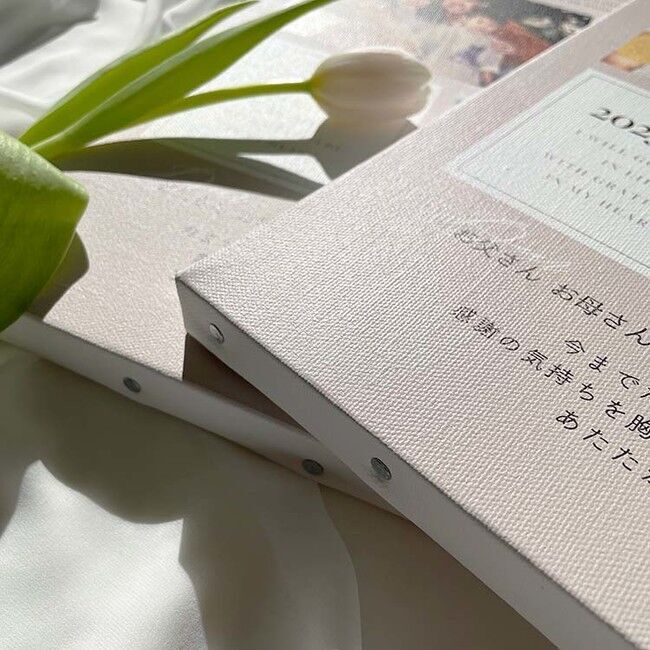 202
I WILL G
WITH GRATE
IN MY HEAR
お父さん お母さん
今まで
感謝の気持ちを胸
あたたか